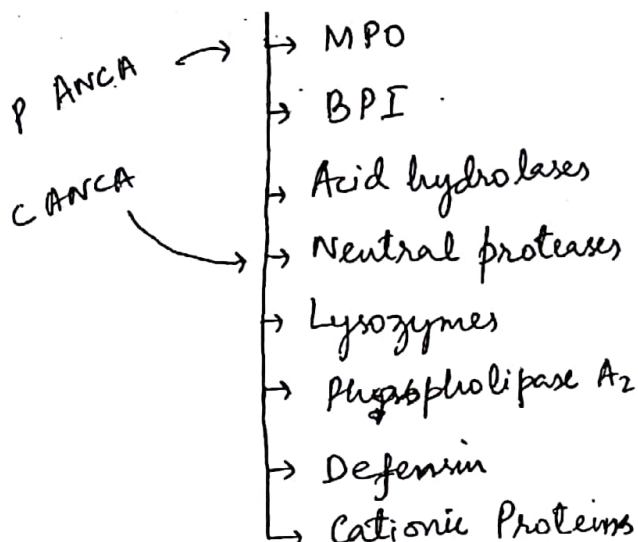 P ANCA
C ANCA
→ MPO
→ BPI
→ Acid hydrolases
→ Neutral proteases
→ Lysozymes
→ Phospholipase A₂
→ Defensin
→ Cationic Proteins